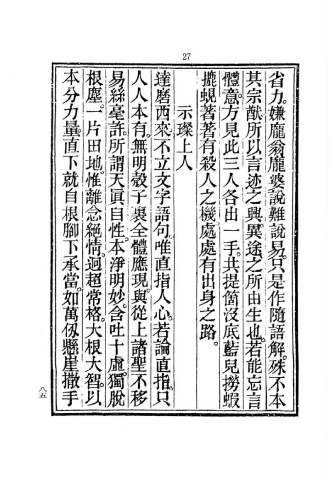 27
省力。嫌龐翁龐婆說難說易。只是作隨語解。殊不本
其宗猷所以言迹之興異途之所由生也。若能忘言
體意。方見此三人各出一手。共提箇沒底藍兒撈蝦
摝蜆。著著有殺人之機。處處有出身之路。
示璨上人
達磨西來。不立文字語句。唯直指人心。若論直指。只
人人本有。無明殼子裏全體應現。與從上諸聖不移
易絲毫許。所謂天眞自性本淨明妙。含吐十虛。獨脫
根塵。一片田地。惟離念絕情。迥超常格。大根大智。以
本分力量直下就自根腳下承當。如萬仞懸崖撒手
八五